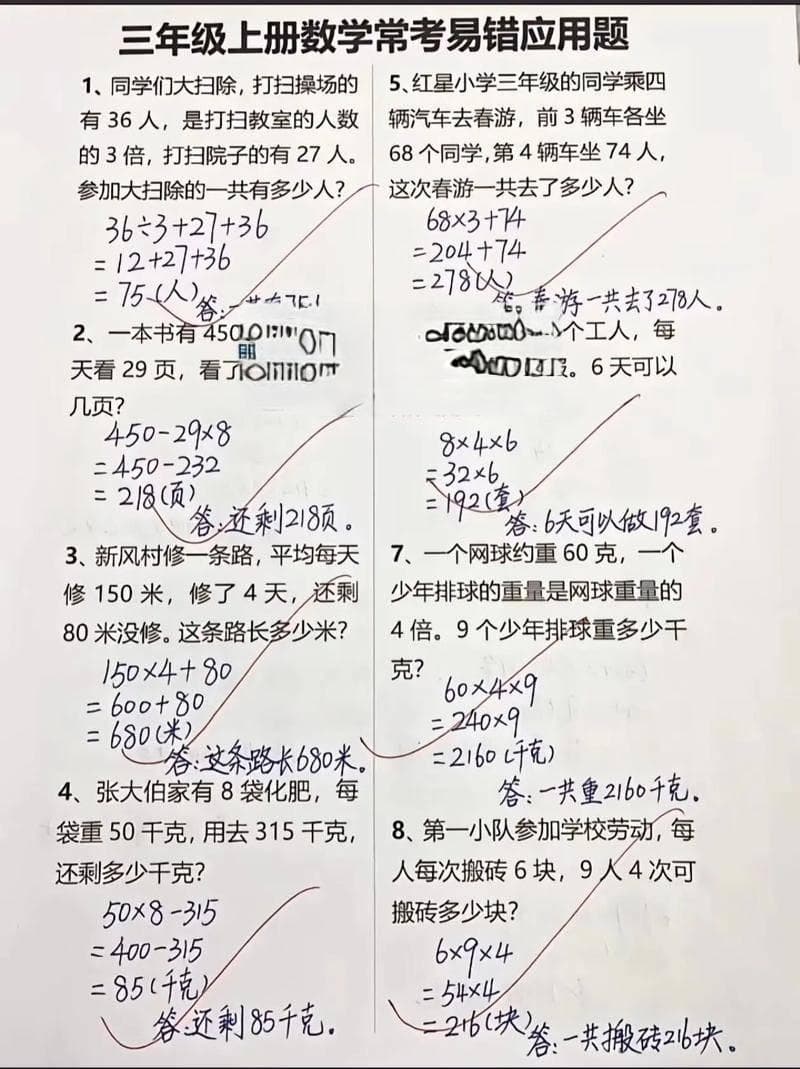 三年级上册数学常考易错应用题
1、同学们大扫除，打扫操场的
有 36 人，是打扫教室的人数
的 3 倍，打扫院子的有 27 人。
参加大扫除的一共有多少人?
36÷3+27+36
=12+27+36
=75(人)
答:一共有75人
2、一本书有 450
天看 29 页，看了
几页?
450-29×8
=450-232
=218(页)
答:还剩218页。
3、新风村修一条路，平均每天
修 150 米，修了 4 天，还剩
80 米没修。这条路长多少米?
150×4+80
=600+80
=680(米)
答:这条路长680米。
4、张大伯家有 8 袋化肥，每
袋重 50 千克，用去 315 千克，
还剩多少千克?
50×8-315
=400-315
=85(千克)
答:还剩85千克。
5、红星小学三年级的同学乘四
辆汽车去春游，前 3 辆车各坐
68 个同学，第 4 辆车坐 74 人，
这次春游一共去了多少人?
68×3+74
=204+74
=278(人)
答:春游一共去了278人。
个工人，每
。6 天可以
8×4×6
=32×6
=192(套)
答:6天可以做192套。
7、一个网球约重 60 克，一个
少年排球的重量是网球重量的
4 倍。9 个少年排球重多少千
克?
60×4×9
=240×9
=2160(千克)
答:一共重2160千克。
8、第一小队参加学校劳动，每
人每次搬砖 6 块，9 人 4 次可
搬砖多少块?
6×9×4
=54×4
=216(块)
答:一共搬砖216块。